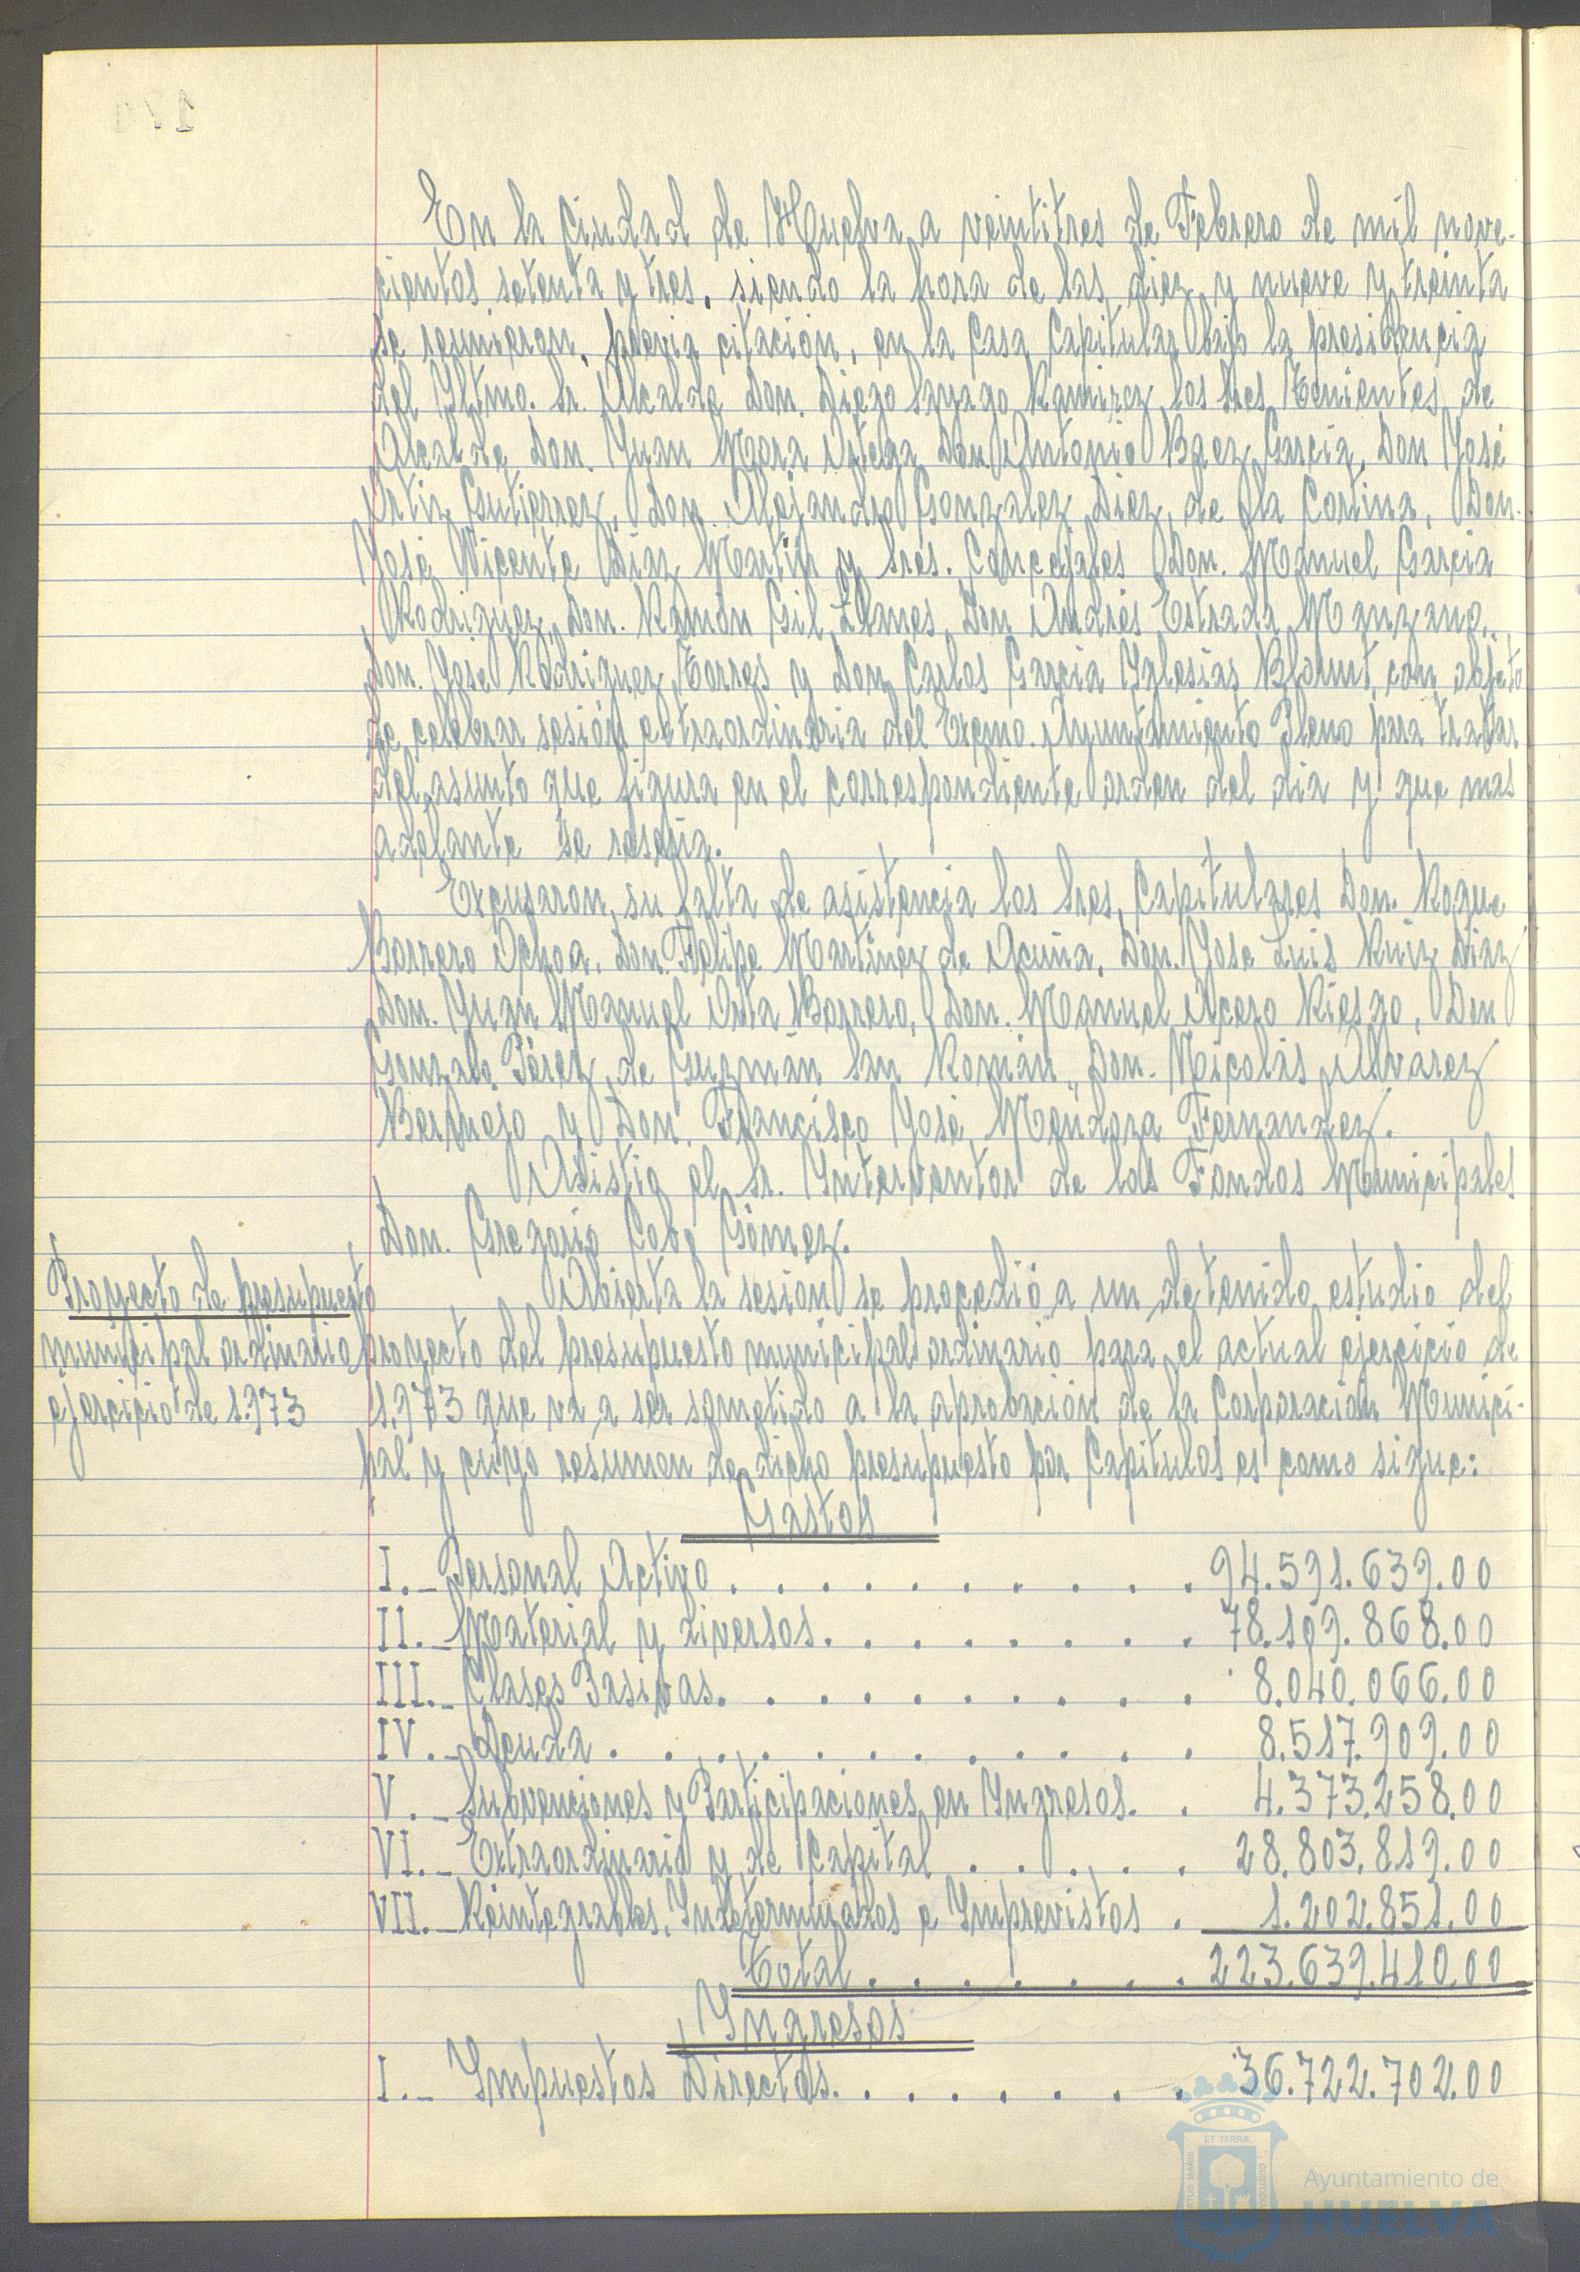 En la Ciudad de Huelva a veintitres de Febrero de mil nove-
cientos setenta y tres, siendo la hora de las diez y nueve y treinta
se reunieron, previa citación, en la Casa Capitular bajo la presidencia
del Iltmo. Sr. Alcalde Don. Diego Sayago Ramirez los Sres Tenientes de
Alcalde Don. Juan Mora Ortega Don Antonio Baez Garcia, Don José
Ortiz Gutierrez, Don. Alejandro Gonzalez Diez, de la Cortina, Don.
José Vicente Diaz Martin y Sres. Concejales Don. Manuel Garcia
Rodriguez, Don. Ramón Gil Llanes, Don Andrés Estrada Manzano,
Don. José Rodriguez, Torres y Don Carlos Garcia Iglesias Blount, con objeto
de celebrar sesión extraordinaria del Excmo. Ayuntamiento Pleno para tratar
del asunto que figura en el correspondiente orden del dia y que mas
adelante se reseña.
Excusaron, su falta de asistencia los Sres, Capitulares Don. Roque
Barrero Ochoa, Don. Felipe Martinez de Acuña, Don. Jose Luis Ruiz Diaz
Don. Juan Manuel Orta Borrero, Don. Manuel Acero Riesgo, Don
Gonzalo Pérez, de Guzmán San Román, Don. Nicolás Alvarez
Berrueso y Don. Francisco José Mendoza Fernandez.
Asistio el Sr. Interventor de los Fondos Municipales
Don. Gregorio Cobo Gómez.
Proyecto de presupuesto
municipal ordinario
ejercicio de 1.973
Abierta la sesion se procedió a un detenido estudio del
proyecto del presupuesto municipal ordinario para el actual ejercicio de
1.973 que va a ser sometido a la aprobación de la Corporación Munici-
pal y cuyo resumen de dicho presupuesto por Capitulos es como sigue:
Gastos
I.- Personal Activo . . . . . . . . . . 94.591.639.00
II.- Material y diversos. . . . . . . . 78.109.868.00
III.- Clases Pasivas. . . . . . . . . . 8.040.066.00
IV.- Deuda . . . . . . . . . . . . 8.517.909.00
V.- Subvenciones y Participaciones en Ingresos. . 4.373.258.00
VI.- Extraordinario y de Capital . . . . . 28.803.819.00
VII.- Reintegrables, Indeterminados e Imprevistos . 1.202.851.00
Total . . . . . . . 223.639.410.00
Ingresos
I.- Impuestos Directos. . . . . . . . 36.722.702.00
Ayuntamiento de
HUELVA